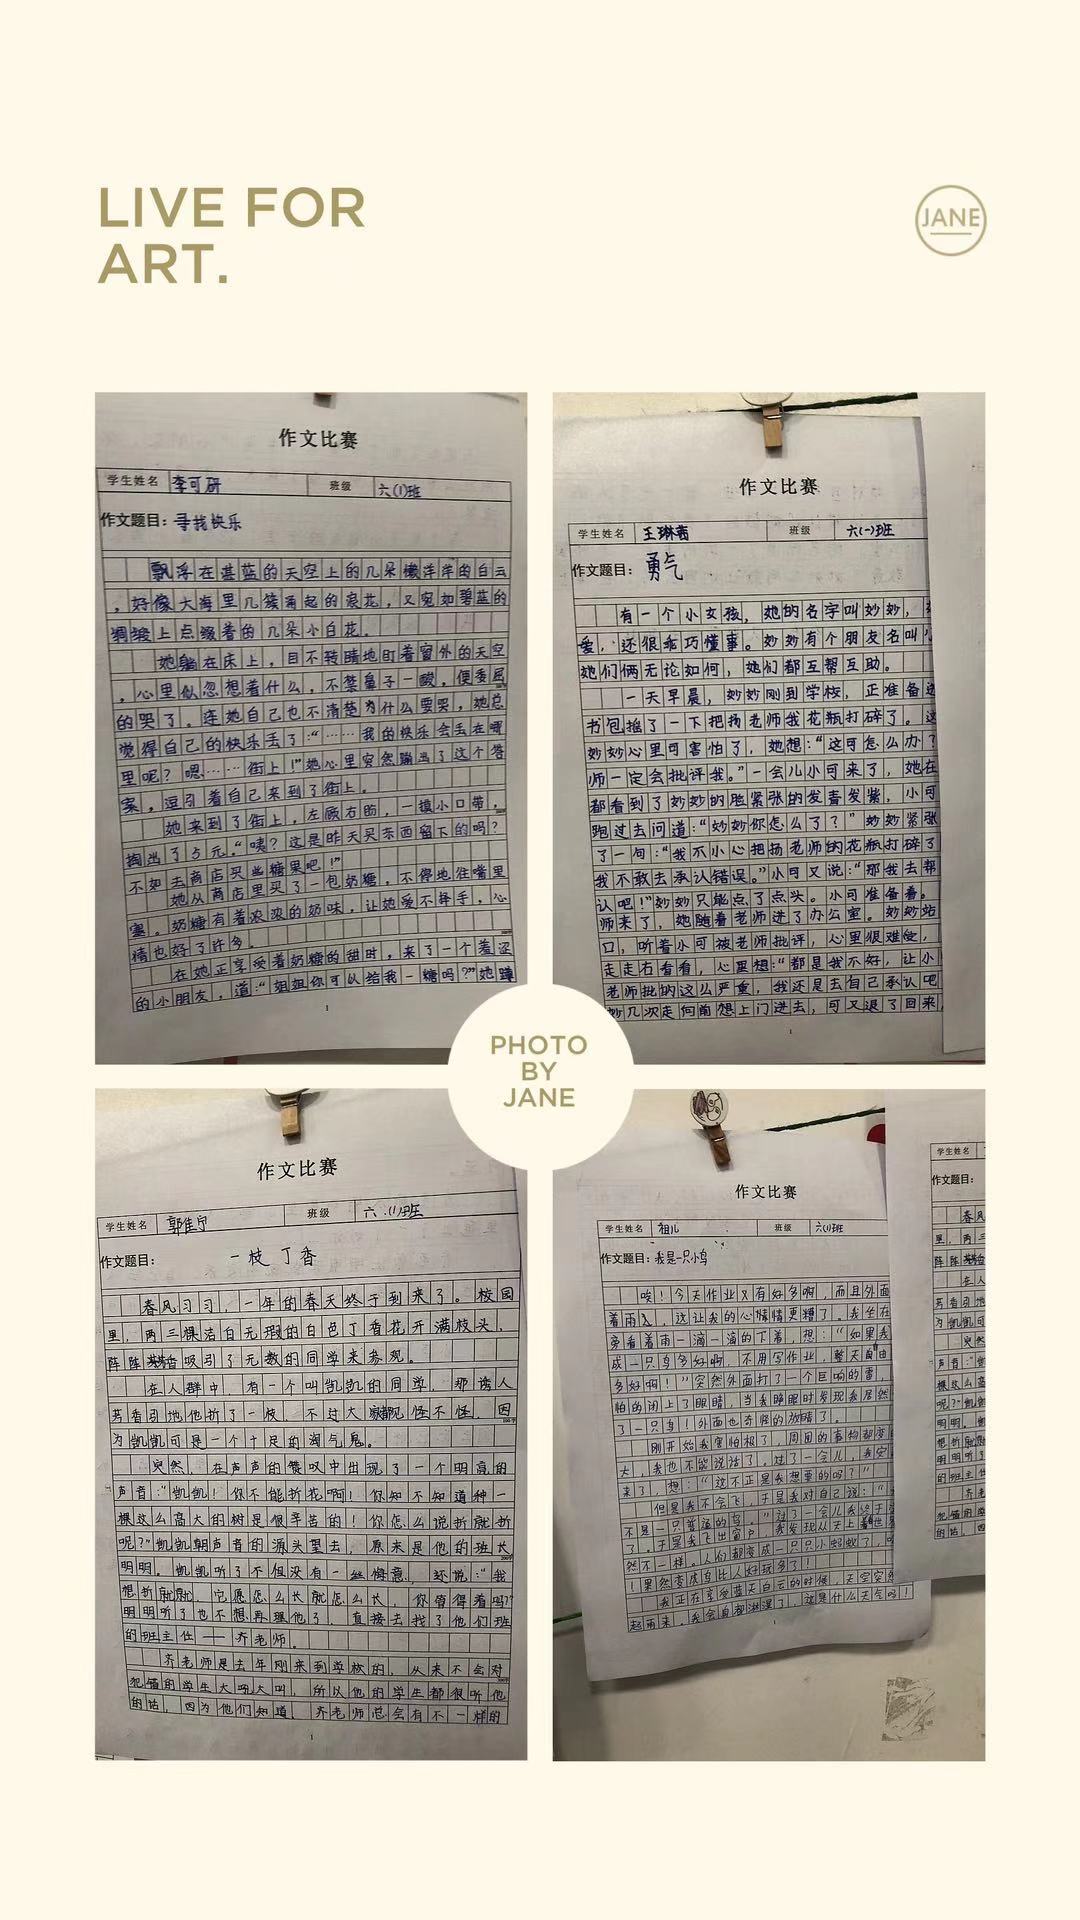 LIVE FOR
ART.
JANE
作文比赛
学生姓名 李可研 班级 六(1)班
作文题目：寻找快乐
飘浮在湛蓝的天空上的几朵懒洋洋的白云
，好像大海里几簇涌起的浪花，又宛如碧蓝的
绸缎上点缀着的几朵小白花。
她躺在床上，目不转睛地盯着窗外的天空
，心里似忽想着什么，不禁鼻子一酸，便委屈
的哭了。连她自己也不清楚为什么要哭，她总
觉得自己的快乐丢了“……我的快乐会丢在哪
里呢？嗯……街上！”她心里突然蹦出了这个答
案，逗引着自己来到了街上。
她来到了街上，左顾右盼，一摸小口带，
掏出了5元。“咦？这是昨天买东西留下的吗？
不如去商店买些糖果吧！”
她从商店里买了一包奶糖，不停地往嘴里
塞。奶糖有着浓浓的奶味，让她爱不释手，心
情也好了许多。
在她正享受着奶糖的甜时，来了一个羞涩
的小朋友，道：“姐姐你可以给我一糖吗？”她蹲
1
作文比赛
学生姓名 王琳茜 班级 六(一)班
作文题目：勇气
有一个小女孩，她的名字叫妙妙，
爱，还很乖巧懂事。妙妙有个朋友名叫
她们俩无论如何，她们都互帮互助。
一天早晨，妙妙刚到学校，正准备进
书包摇了一下把杨老师我花瓶打碎了。这
妙妙心里可害怕了，她想：“这可怎么办？
师一定会批评我。”一会儿小可来了，她在
都看到了妙妙的脸紧张的发青发紫，小可
跑过去问道：“妙妙你怎么了？”妙妙紧张
了一句：“我不小心把杨老师的花瓶打碎了
我不敢去承认错误。”小可又说：“那我去帮
认吧！”妙妙只能点了点头。小可准备着。
师来了，她随着老师进了办公室。妙妙站
口，听着小可被老师批评，心里很难受，
走走右看看，心里想：“都是我不好，让小
老师批的这么严重，我还是去自己承认吧
妙几次走向前想上门进去，可又退了回来
1
PHOTO
BY
JANE
作文比赛
学生姓名 郭佳宁 班级 六.(1)班
作文题目： 一枝丁香
春风习习，一年的春天终于到来了。校园
里，两三棵洁白无瑕的白色丁香花开满枝头，
阵阵香吸引了无数的同学来参观。
在人群中，有一个叫凯凯的同学，那诱人
芳香引地他折了一枝，不过大家都见怪不怪，因
为凯凯可是一个十足的淘气鬼。
突然，在声声的赞叹中出现了一个明亮的
声音：“凯凯！你不能折花啊！你知不知道种一
棵这么高大的树是很辛苦的！你怎么说折就折
呢？”凯凯朝声音的源头望去，原来是他的班长
明明。凯凯听了不但没有一丝悔意，还说：“我
想折就就，它愿怎么长就怎么长，你值得着吗？”
明明听了也不想再理他了，直接去找了他们班
的班主任——齐老师。
齐老师是去年刚来到学校的，从来不会对
犯错的学生大吼大叫，所以他的学生都很听他
的话，因为他们知道，齐老师总会有不一样的
1
作文比赛
学生姓名 祖儿 班级 六(1)班
作文题目：我是一只小鸟
唉！今天作业又有好多啊，而且外面
着雨，这让我的心情更糟了。我坐在
旁看着雨一滴一滴的下着，想：“如果我
成一只鸟多好啊，不用写作业，整天自由
多好啊！”突然外面打了一个巨响的雷，
怕的闭上了眼睛，当我睁眼时发现我居然
了一只鸟！外面也奇怪的放晴了。
刚开始我害怕极了，周围的事物都变
大，我也不能说话了，过了一会儿，我安
来了，想：“这不正是我想要的吗？”
但是我不会飞，于是我对自己说：“
不是一只普通的鸟。”过了一会儿我终于
了。于是我飞出窗户，我发现从天上看世
然不一样。人们都变成一只只小蚂蚁了，
！果然变成鸟比人好玩多了！
我正在享受蓝天白云的时候，天空突然
起雨来，我全身都淋湿了，这是什么天气吗！
1
学生姓名
作文题目：
春风
里，两三
阵阵
在人
芳香引地
为凯凯可
突然
声音：“凯
棵这么
呢？”凯
明明。
想折就
明明听了
的班主
齐老
犯错的
的话